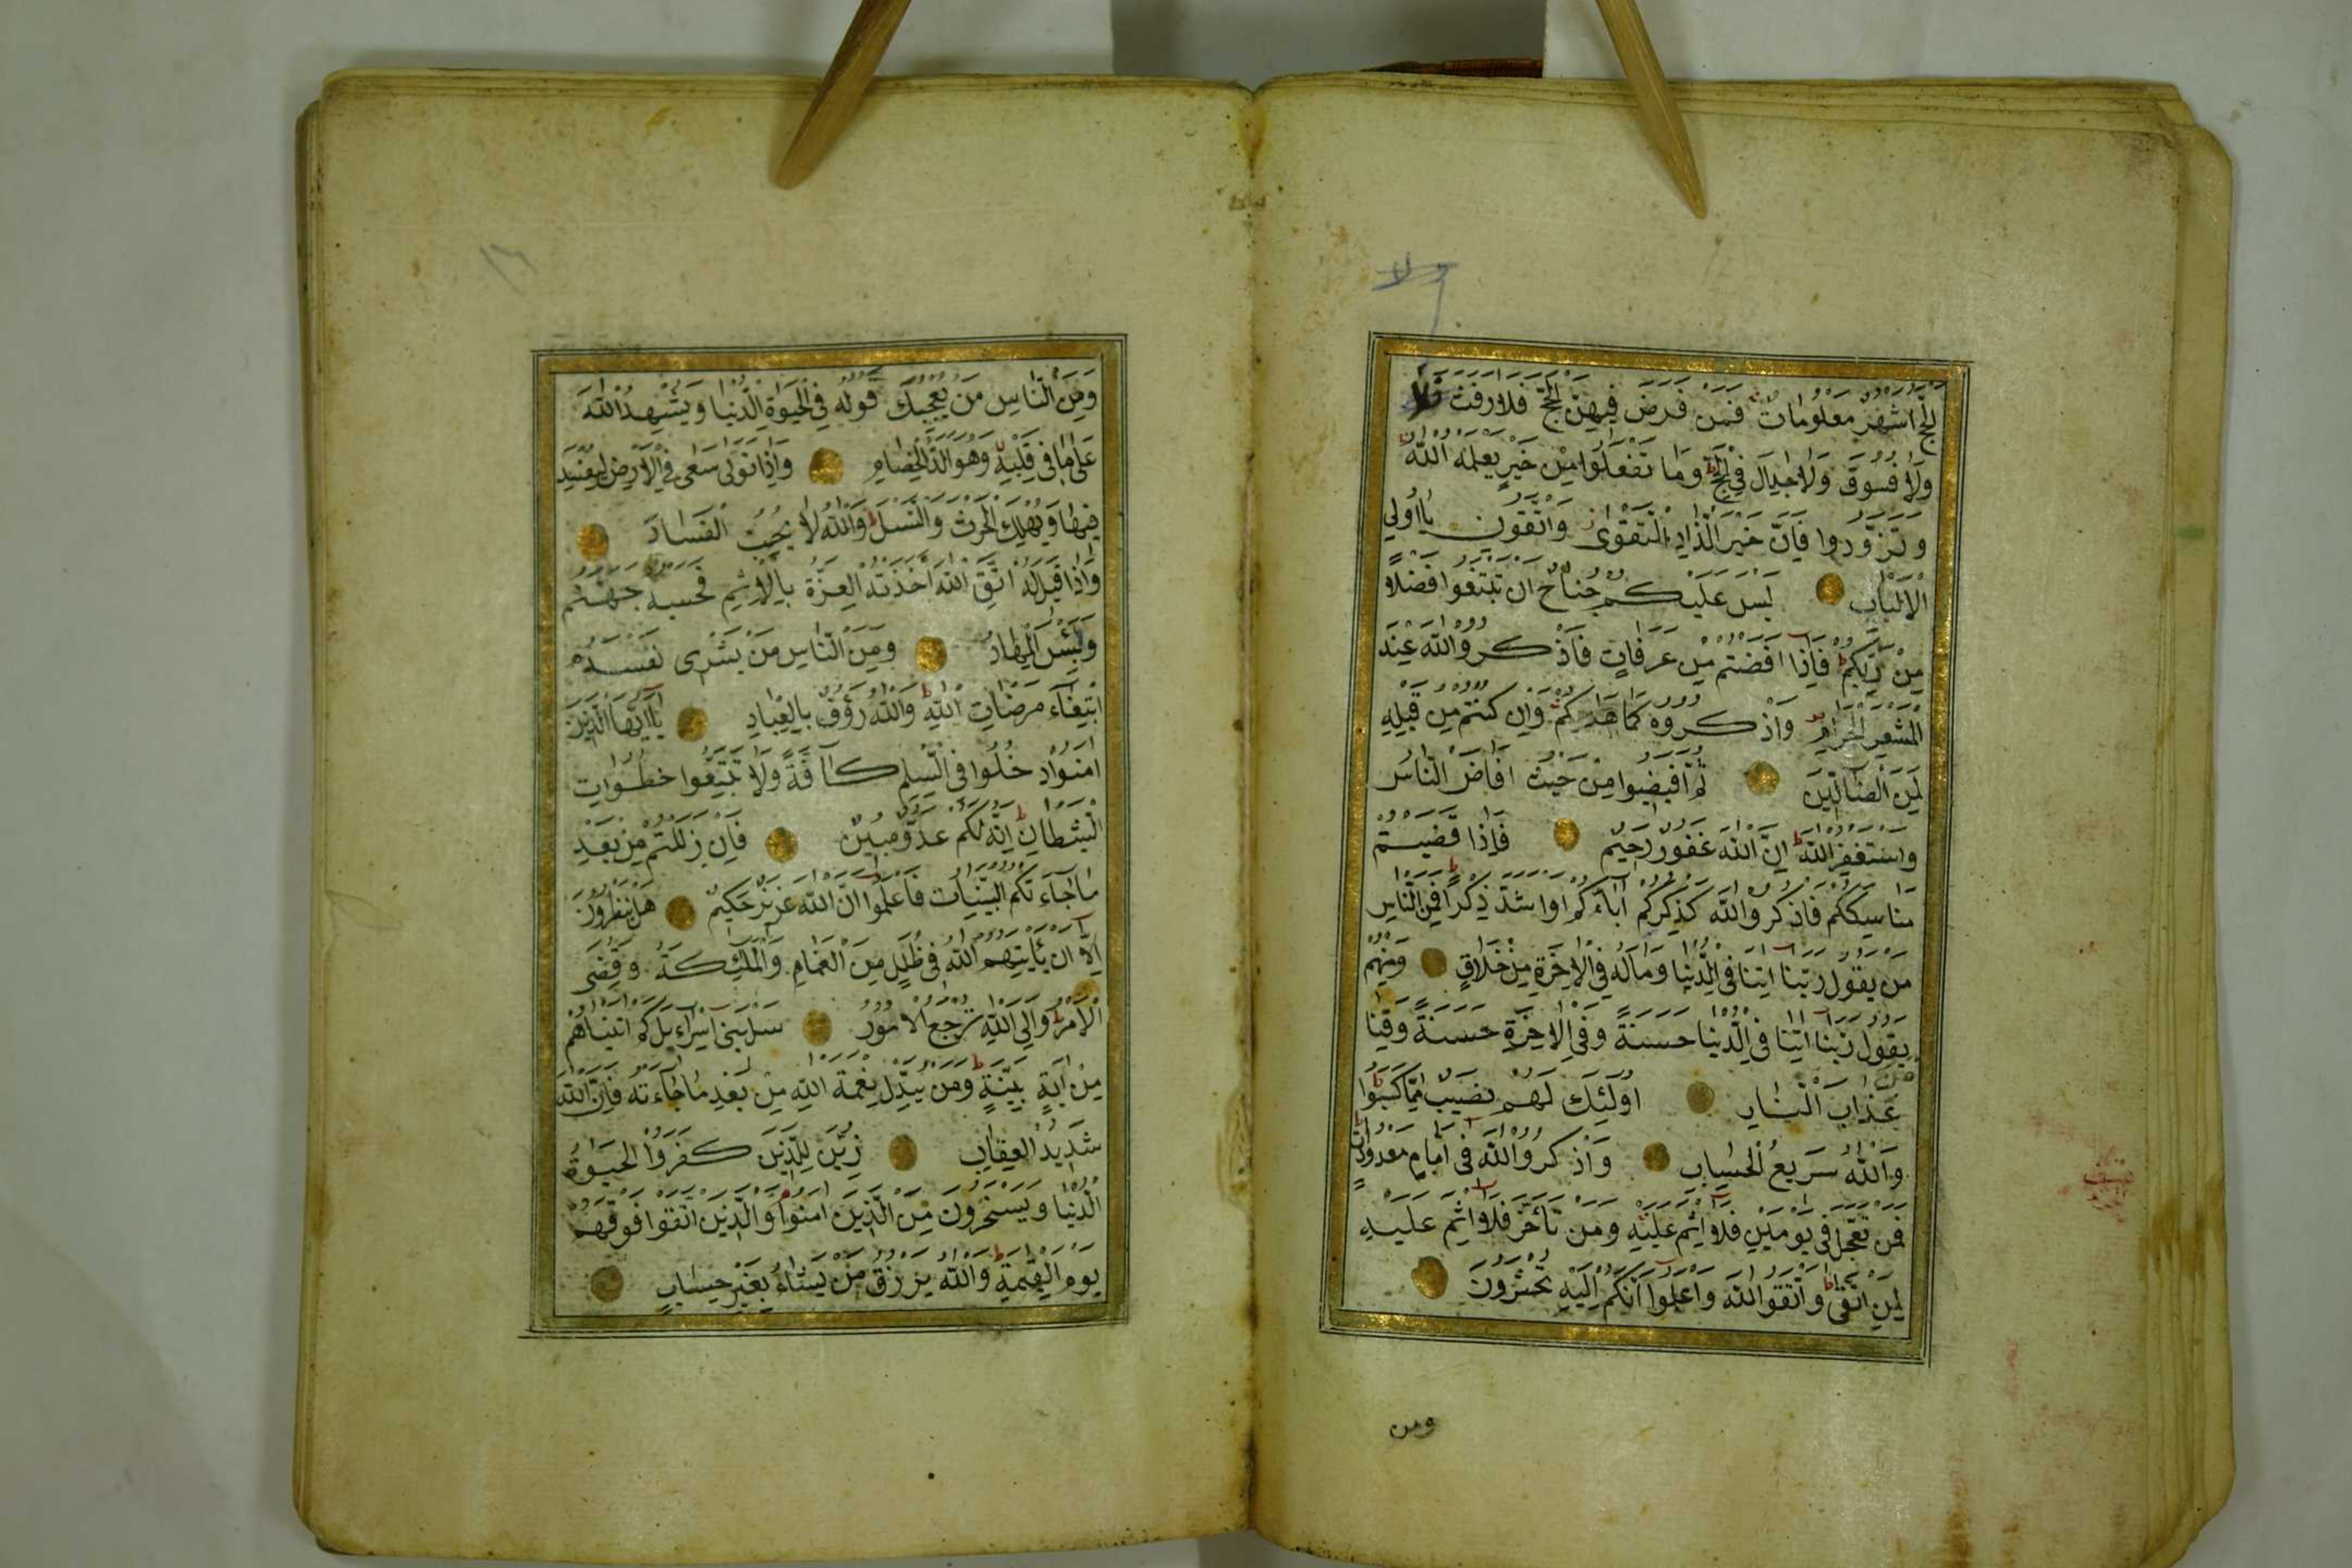 ولا
الحج اشهر معلومات فمن فرض فيهن الحج فلا رفث ولا
ولا فسوق ولا جدال في الحج وما تفعلوا من خير يعلمه الله
وتزودوا فان خير الزاد التقوى واتقون يا اولي
الالباب ليس عليكم جناح ان تبتغوا فضلا
من ربكم فاذا افضتم من عرفات فاذكروا الله عند
المشعر الحرام واذكروه كما هديكم وان كنتم من قبله
لمن الضالين ثم افيضوا من حيث افاض الناس
واستغفر الله ان الله غفور رحيم فاذا قضيتم
مناسككم فاذكروا الله كذكركم اباءكم او اشد ذكرا فمن الناس
من يقول ربنا اتنا في الدنيا وماله في الاخرة من خلاق ومنهم
يقول ربنا اتنا في الدنيا حسنة وفي الاخرة حسنة وقنا
عذاب النار اولئك لهم نصيب مما كسبوا
والله سريع الحساب واذكروا الله في ايام معدودات
فمن تعجل في يومين فلا اثم عليه ومن تأخر فلا اثم عليه
لمن اتقى واتقوا الله واعلموا انكم اليه تحشرون
ومن
١٦
ومن الناس من يعجبك قوله في الحيوة الدنيا ويشهد الله
على ما في قلبه وهو الد الخصام واذا تولى سعى في الارض ليفسد
فيها ويهلك الحرث والنسل والله لا يحب الفساد
واذا قيل له اتق الله اخذته العزة بالاثم فحسبه جهنم
ولبئس المهاد ومن الناس من يشرى نفسه
ابتغاء مرضات الله والله رؤف بالعباد يا ايها الذين
امنوا ادخلوا في السلم كافة ولا تتبعوا خطوات
الشيطان انه لكم عدو مبين فان زللتم من بعد
ما جاءتكم البينات فاعلموا ان الله عزيز حكيم هل ينظرون
الا ان يأتيهم الله في ظلل من الغمام والملئكة وقضى
الامر والى الله ترجع الامور سل بنى اسراءيل كم اتيناهم
من اية بينة ومن يبدل نعمة الله من بعد ما جاءته فان الله
شديد العقاب زين للذين كفروا الحيوة
الدنيا ويسخرون من الذين امنوا والذين اتقوا فوقهم
يوم القيمة والله يرزق من يشاء بغير حساب